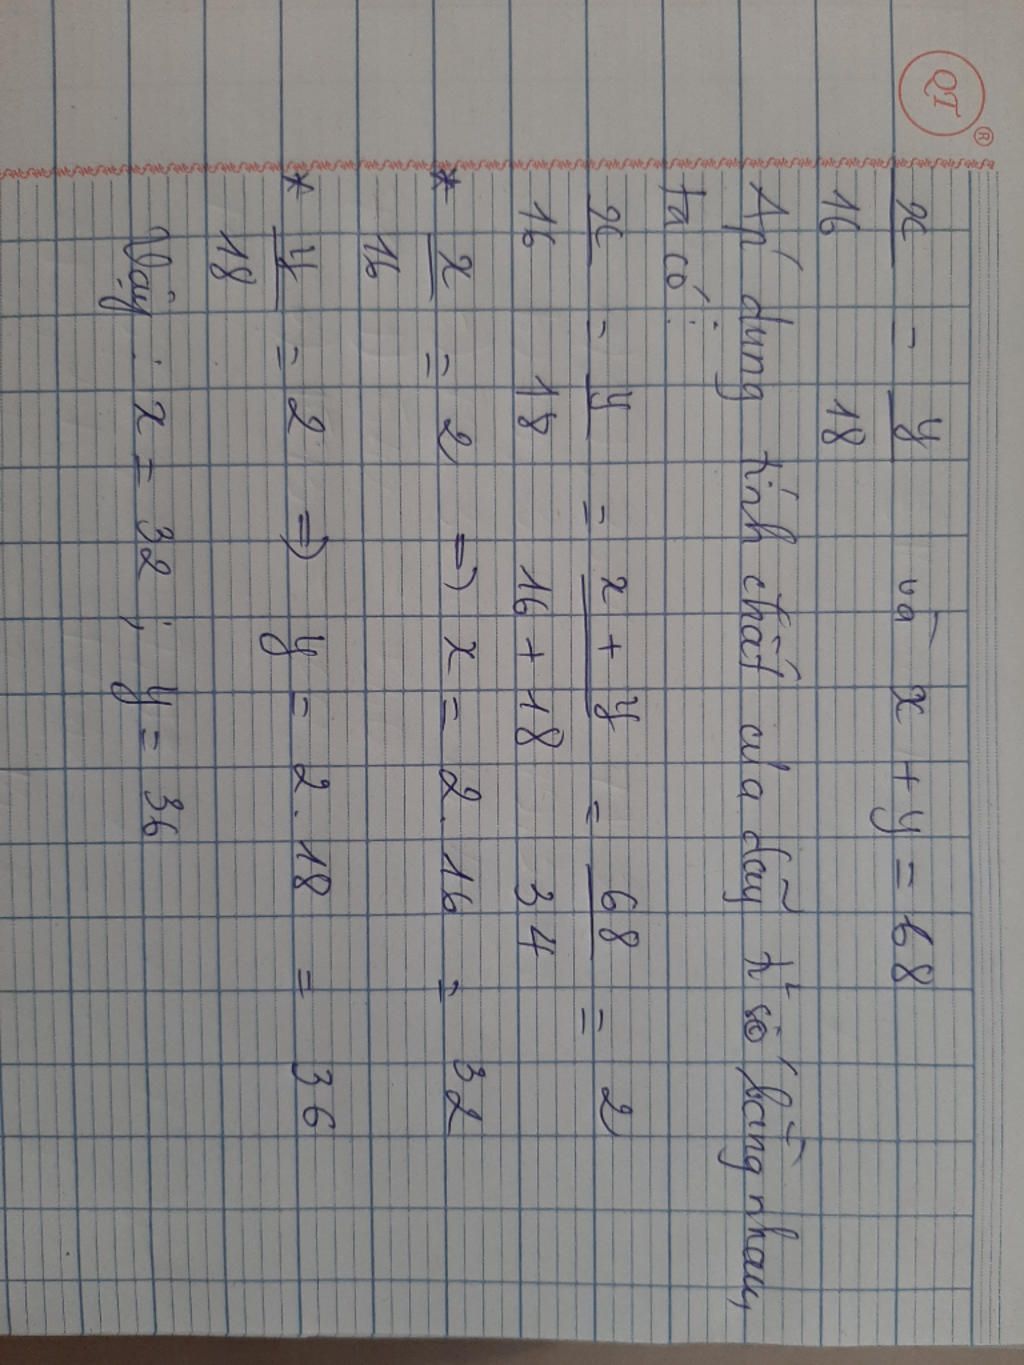 QT ®
x/16 = y/18 và x + y = 68
Áp dụng tính chất của dãy tỉ số bằng nhau,
ta có:
x/16 = y/18 = x + y/16 + 18 = 68/34 = 2
* x/16 = 2 => x = 2.16 = 32
* y/18 = 2 => y = 2.18 = 36
Vậy : x = 32 ; y = 36